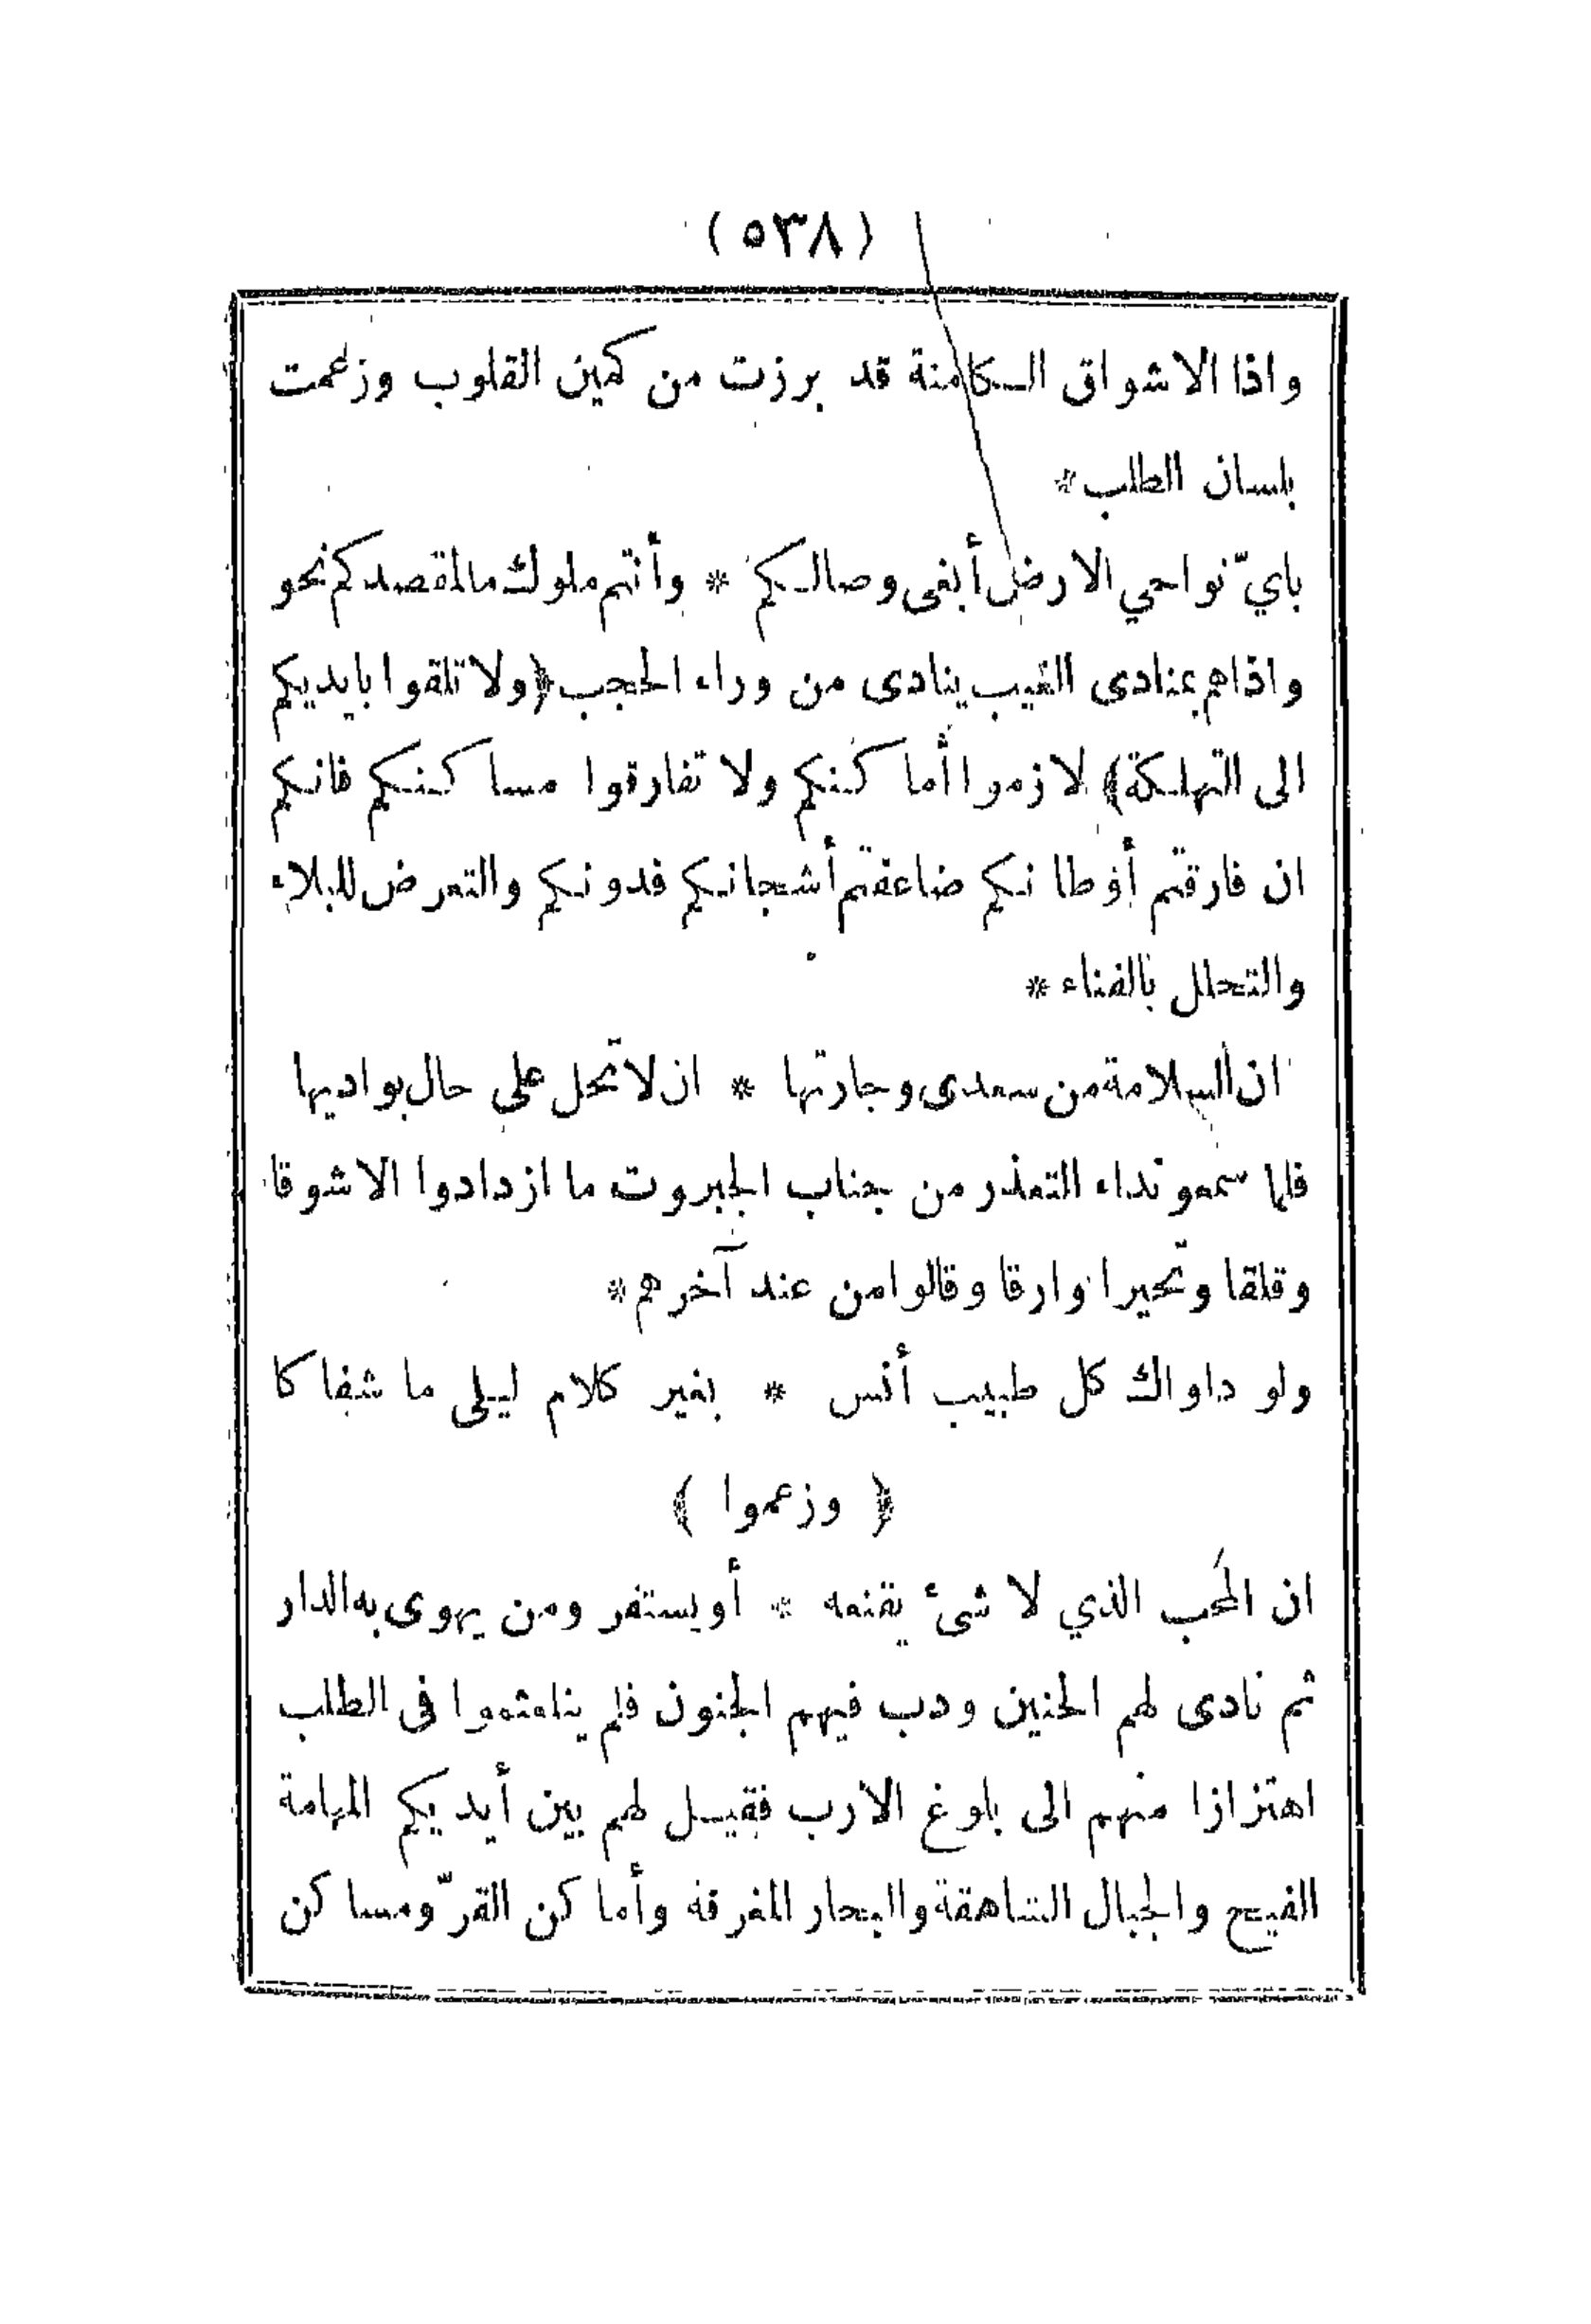 (٥٣٨)
واذا الاشواق الكامنة قد برزت من كمين القلوب وزعمت
بلسان الطلب*
باي نواحي الارض أبغى وصالكم * وأنتم ملوك مالمقصدكم نحو
واذاهم بمنادى الغيب ينادى من وراء الحجب ﴿ولا تلقوا بايديكم
الى التهلكة﴾ لازموا أماكنكم ولا تفارقوا مساكنكم فانكم
ان فارقتم أوطانكم ضاعفتم أشجانكم فدونكم والتعرض للبلاء
والتحلل بالفناء *
ان السلامة من سعدى وجارتها * ان لا تحل على حال بواديها
فلما سمعو نداء التعذر من جناب الجبروت ما ازدادوا الا شوقا
وقلقا وتحيرا وارقا وقالوا من عند آخرهم*
ولو داواك كل طبيب أنس * بغير كلام ليلى ما شفاكا
﴿ وزعموا ﴾
ان المحب الذي لا شئ يقنعه * أو يستقر ومن يهوى به الدار
ثم نادى لهم الحنين ودب فيهم الجنون فلم يتلعثموا فى الطلب
اهتزازا منهم الى بلوغ الارب فقيل لهم بين أيديكم المهامة
الفيح والجبال الشاهقة والبحار المغرقة وأماكن القرّ ومساكن